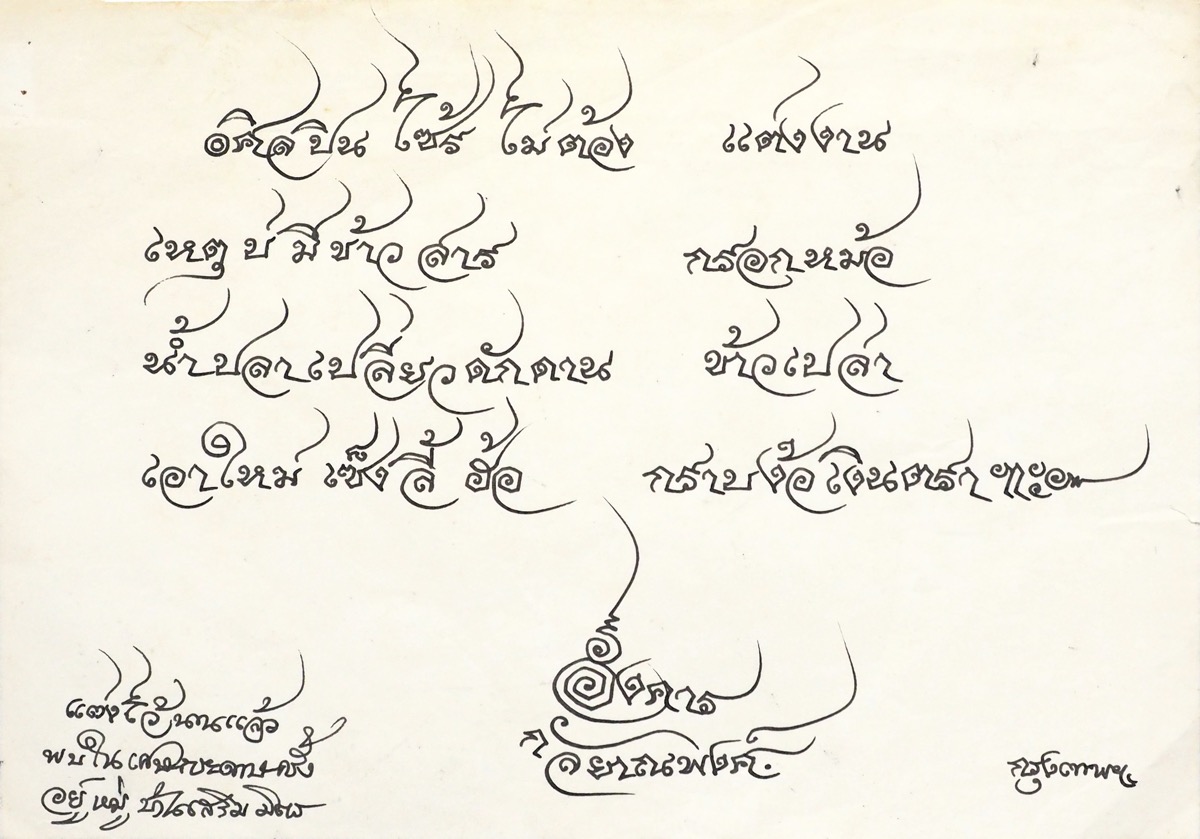 ๏ศิลปิน ไซร้ ไม่ต้อง แต่งงาน
เหตุ บ่ มี ข้าว สาร กรอกหม้อ
น้ำปลาเปลี่ยวดักดาน ข้าวเปล่า
เอาใหม่ เซ็งลี้ ฮ้อ กราบง้อ เงินตรา ฯะ๛
อังคาร
กัลยาณพงศ์
แต่งไว้นานแล้ว
พบในเศษกระดาษซึ่ง
อยู่หมู่บ้านเสริมมิตร
กรุงเทพฯ